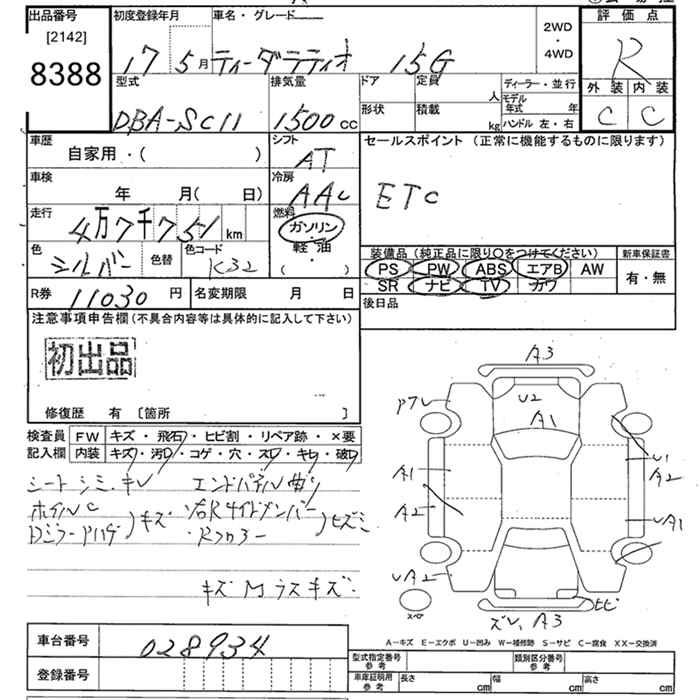 出品番号
[2142]
8388
初度登録年月
17 5月
車名・グレード
ティーダラティオ 15G
2WD
・
4WD
評価点
R
外装 内装
C C
型式
DBA-SC11
排気量
1500cc
ドア
定員
人
形状
積載
kg
ディーラー・並行
モデル年式 年
ハンドル 左・右
車歴
自家用・( )
シフト
AT
セールスポイント (正常に機能するものに限ります)
ETC
車検
年 月( 日)
冷房
AAC
走行
4万7千751km
燃料
ガソリン
軽・油
( )
色
シルバー
色替
色コード
K32
装備品 (純正品に限り○をつけてください)
PS PW ABS エアB AW
SR ナビ TV カワ
新車保証書
有・無
R券 11030円
名変期限 月 日
後日品
注意事項申告欄 (不具合内容等は具体的に記入して下さい)
初出品
修復歴 有 [箇所 ]
検査員 FW キズ・飛石・ヒビ割・リペア跡・×要
記入欄 内装 キズ・汚レ・コゲ・穴・スレ・キレ・破レ
シートシミ・キレ エンドパネル曲リ
ホイルC
Dミラーアハゲ)キズ 右Rサイドメンバー
・Rフロアー )ヒズミ
キズMラスキズ.
A3
アアレ
U2
A1
U1
A1
A2
A2
UA1
UA2
スペア
ヒビ
ズレ、A3
A-キズ E-エクボ U-凹み W-補修跡 S-サビ C-腐食 XX-交換済
車台番号 028934
登録番号
型式指定番号
参考
類別区分番号
参考
車庫証明用
参考
長さ cm 幅 cm 高さ cm